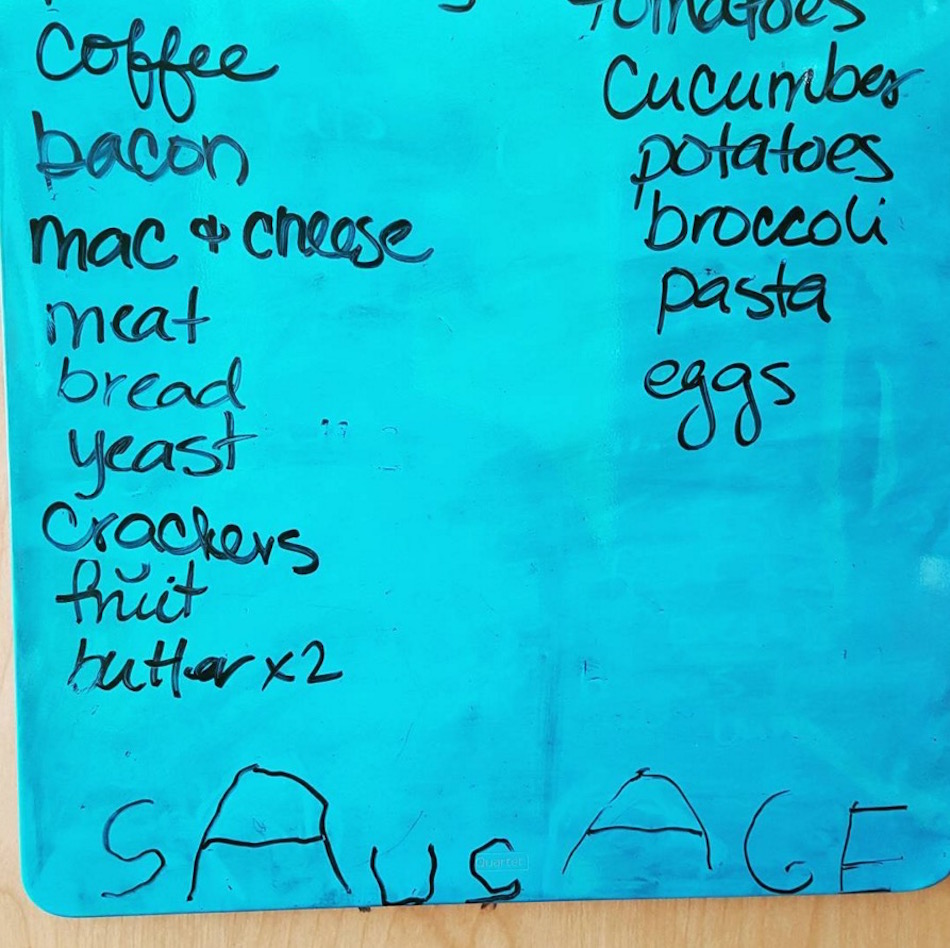 coffee
bacon
mac & cheese
meat
bread
yeast
crackers
fruit
butter x2
tomatoes
Cucumber
potatoes
broccoli
pasta
eggs
SAUSAGE
Quartet